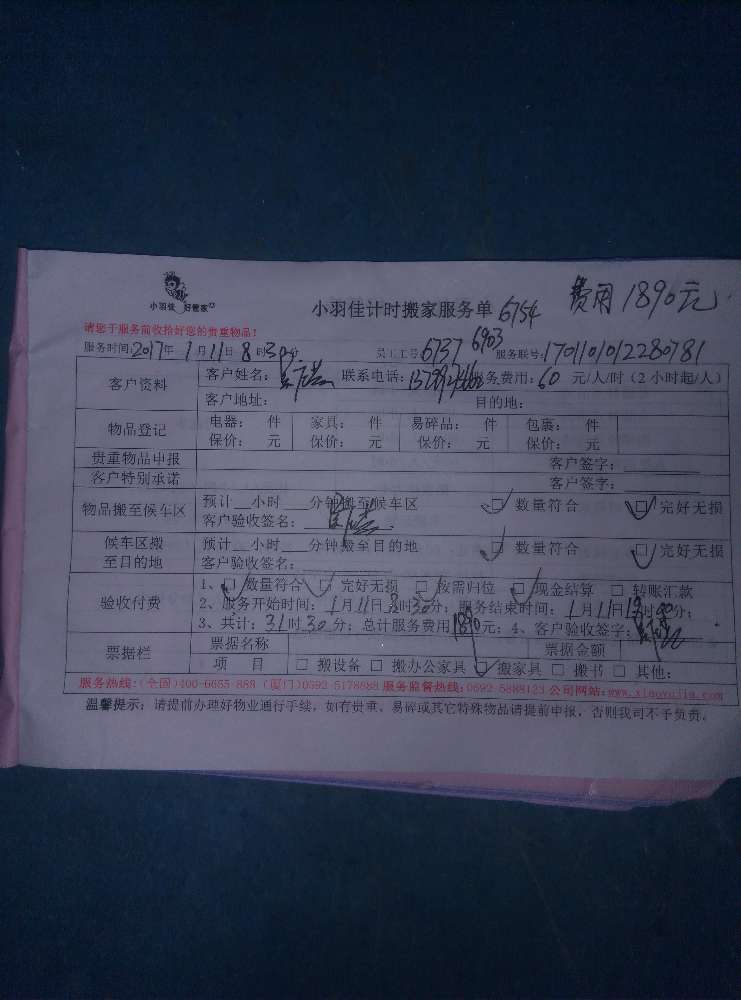 小羽佳 好管家
小羽佳计时搬家服务单 6154 费用1890元
请您于服务前收拾好您的贵重物品！
服务时间：2017年1月11日8时30分 员工工号6737 6903 服务联号：1701101012280781
客户资料 客户姓名： 联系电话： 服务费用：60元/人/时（2小时起/人）
客户地址： 目的地：
物品登记 电器： 件 家具： 件 易碎品： 件 包裹： 件
保价： 元 保价： 元 保价： 元 保价： 元
贵重物品申报 客户签字：
客户特别承诺 客户签字：
物品搬至候车区 预计__小时__分钟搬至候车区 □ 数量符合 □ 完好无损
客户验收签名：
候车区搬至目的地 预计__小时__分钟搬至目的地 □ 数量符合 □ 完好无损
客户验收签名：
验收付费 1、□ 数量符合 □ 完好无损 □ 按需归位 □ 现金结算 □ 转账汇款
2、服务开始时间：1月11日8时30分；服务结束时间：1月11日 时 分；
3、共计：31时30分；总计服务费用1890元；4、客户验收签字：
票据栏 票据名称 票据金额
项 目 □ 搬设备 □ 搬办公家具 □ 搬家具 □ 搬书 □ 其他：
服务热线：（全国）400-6655-888（厦门）0592-5178888 服务监督热线：0592-5888123 公司网站：www.xiaoyujia.com
温馨提示：请提前办理好物业通行手续，如有贵重、易碎或其它特殊物品请提前申报，否则我司不予负责。